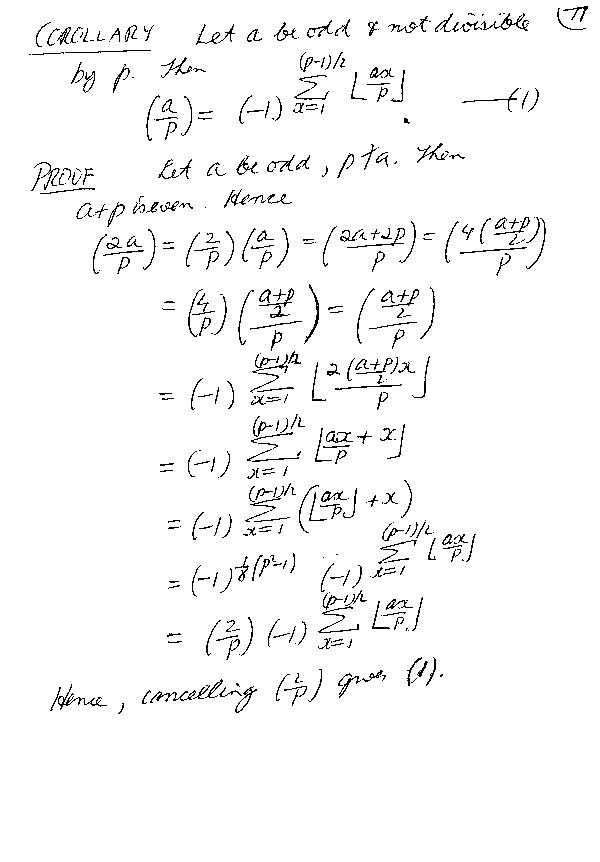 COROLLARY Let a be odd & not divisible (77
by p. Then
(a/p) = (-1)^{\sum_{x=1}^{(p-1)/2} ⌊ax/p⌋} —(1)
PROOF Let a be odd, p∤a. Then
a+p is even. Hence
(2a/p) = (2/p)(a/p) = ((2a+2p)/p) = (4((a+p)/2)/p)
= (4/p)(((a+p)/2)/p) = (((a+p)/2)/p)
= (-1)^{\sum_{x=1}^{(p-1)/2} ⌊2((a+p)/2)x/p⌋}
= (-1)^{\sum_{x=1}^{(p-1)/2} ⌊ax/p + x⌋}
= (-1)^{\sum_{x=1}^{(p-1)/2} (⌊ax/p⌋ + x)}
= (-1)^{1/8(p²-1)} (-1)^{\sum_{x=1}^{(p-1)/2} ⌊ax/p⌋}
= (2/p) (-1)^{\sum_{x=1}^{(p-1)/2} ⌊ax/p⌋}
Hence, cancelling (2/p) gives (1).